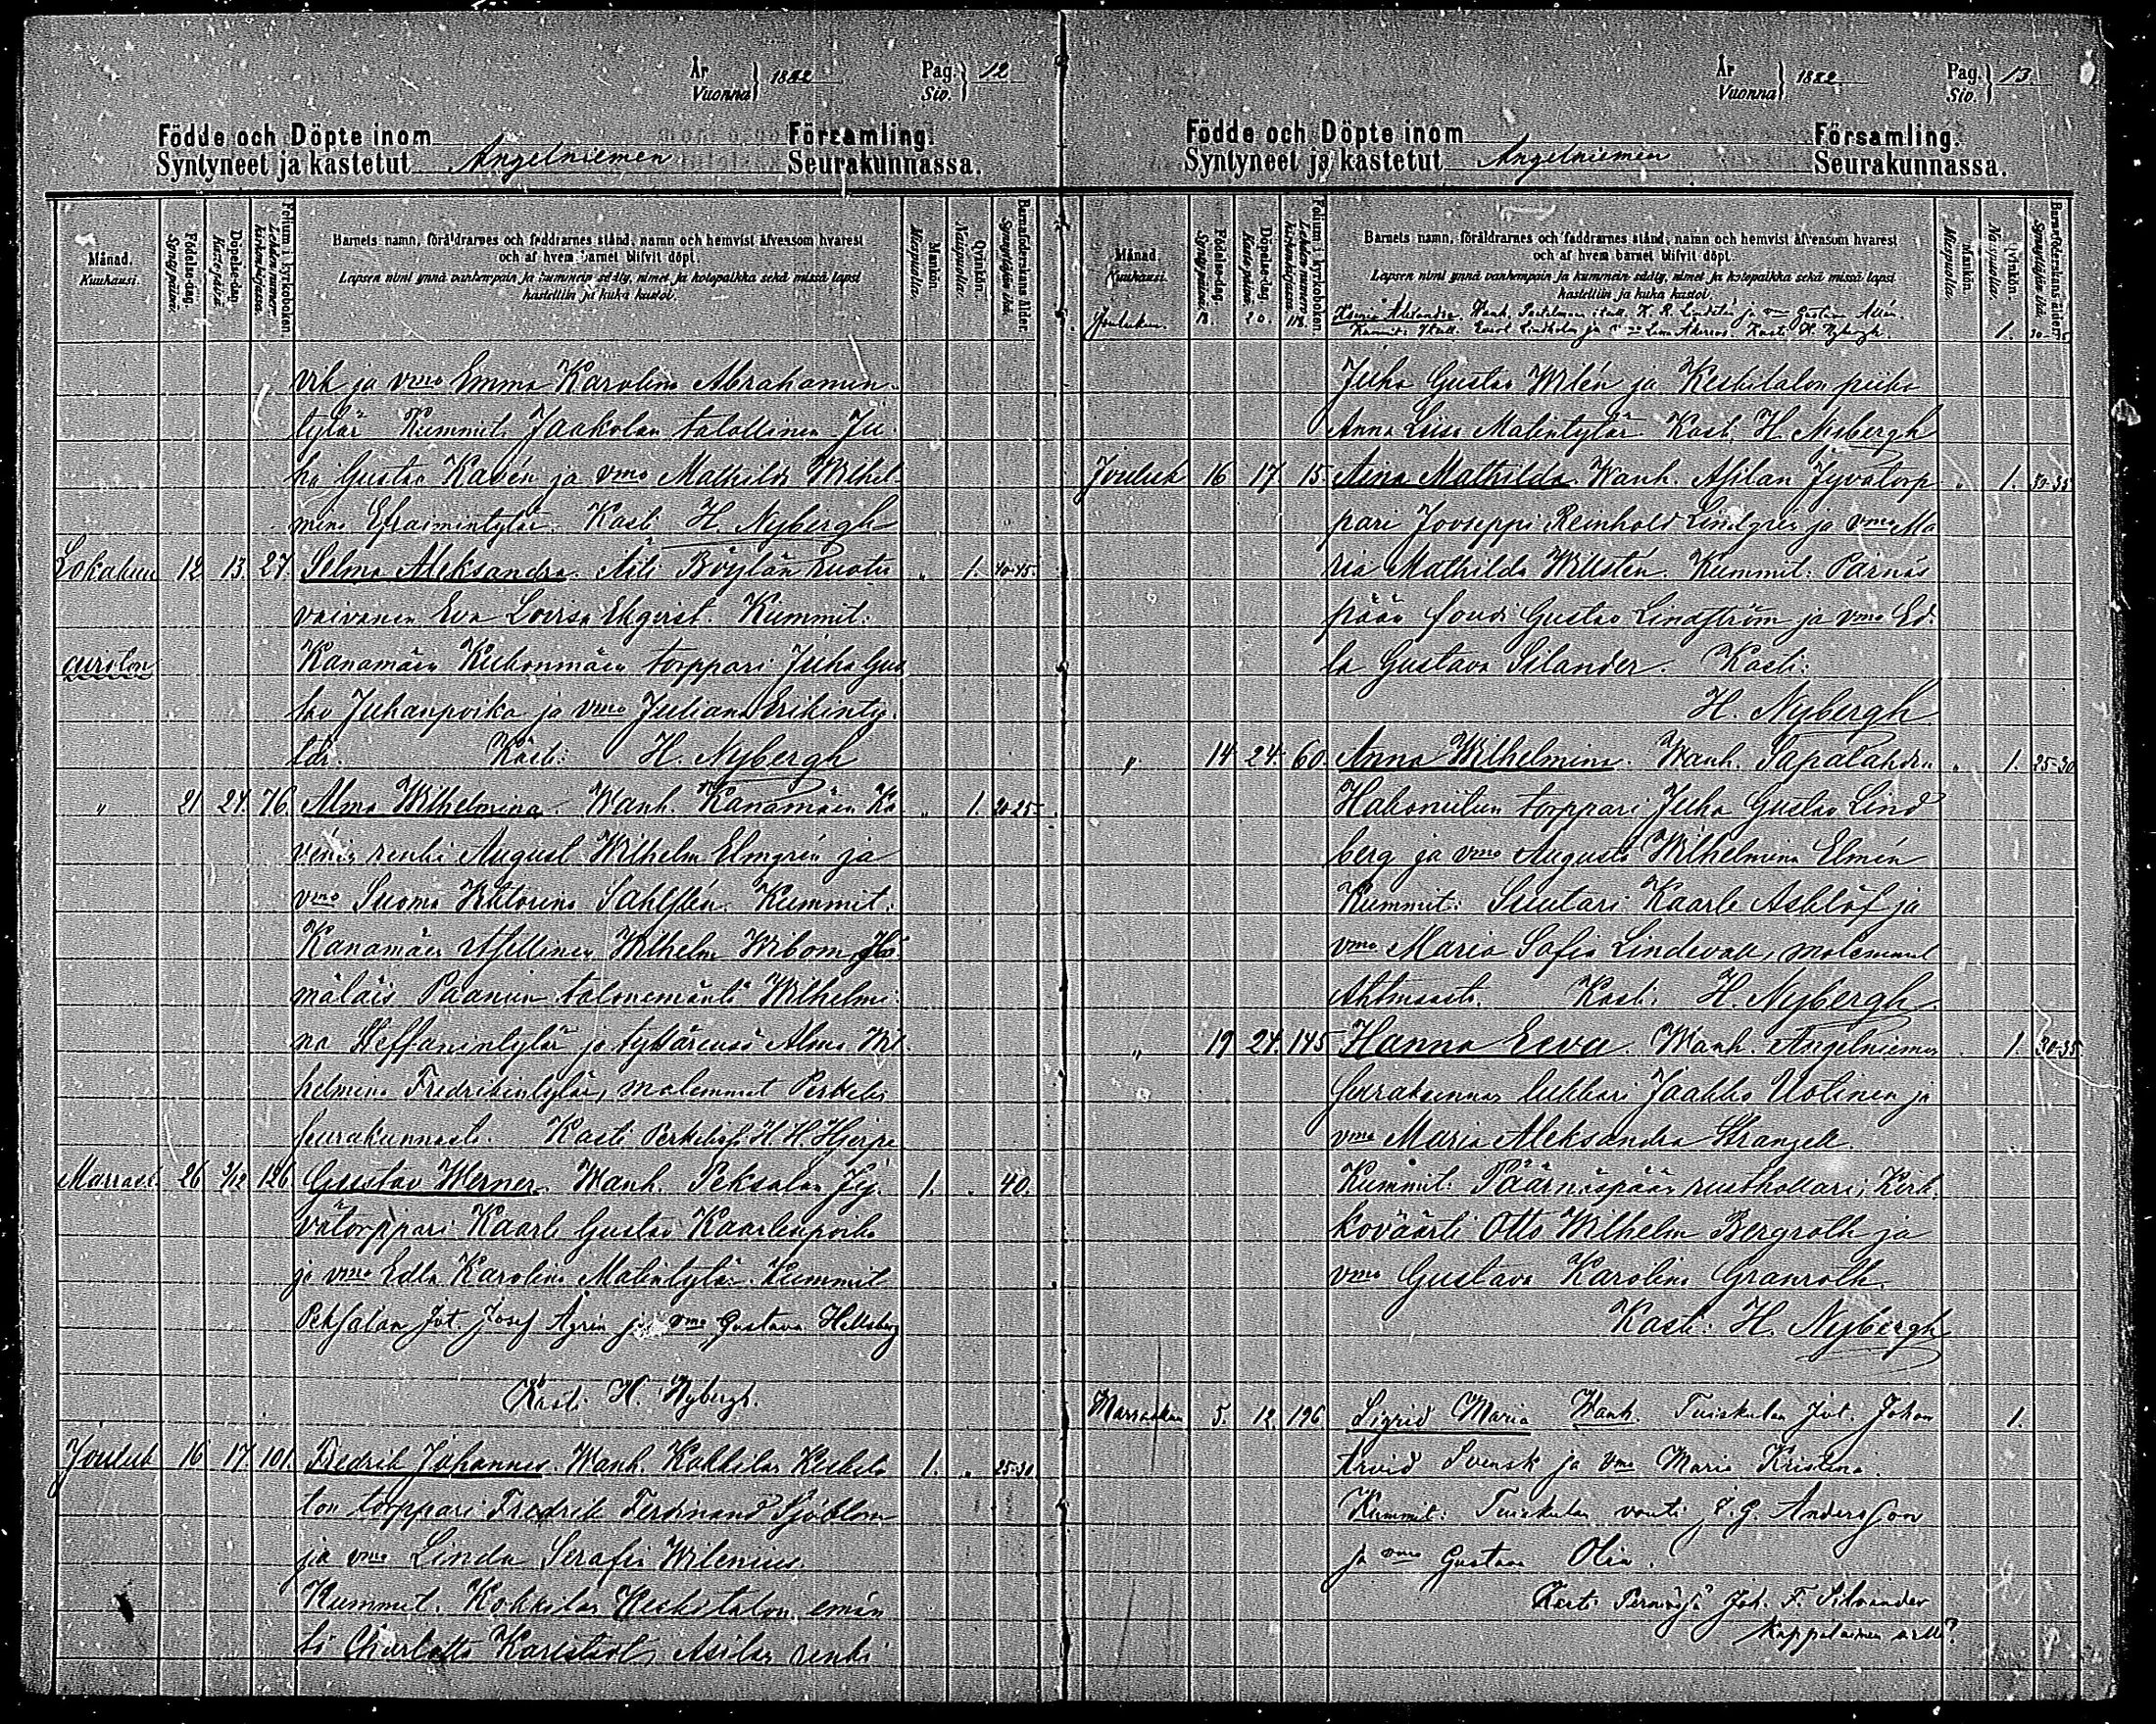 År
Vuonna } 1882
Pag.
Siv. } 12
Födde och Döpte inom Församling.
Syntyneet ja kastetut Angelniemen Seurakunnassa.
Månad.
Kuukausi.
Födelse-dag.
Syntypäivä.
Döpelse-dag.
Kastepäivä.
Folium i kyrkoboken.
Lehden numero kirkonkirjassa.
Barnets namn, föräldrarnes och faddrarnes stånd, namn och hemvist äfvensom hvarest
och af hvem barnet blifvit döpt.
Lapsen nimi ynnä vanhempain ja kummein sääty, nimet ja kotopaikka sekä missä lapsi
kastettiin ja kuka kastoi.
Mankön.
Miespuolia.
Qvinkön.
Naispuolia.
Barnaföderskans ålder.
Synnyttäjän ikä.
vik ja vmo Emma Karolina Abrahamin
tytär Kummit: Jaakolan talollinen Ju
ha Gustav Kavén ja vmo Mathilda Wilhel
mina Efraimintytär. Kasti H. Nybergh
Lokakuu 12 13. 27 Selma Aleksandra. Äiti Pöylän ruotu „ 1. 40-45.
vaivanen Eva Lovisa Ekqvist. Kummit:
aviston Kanamäen Kiekonmäen torppari Juha Gus
tav Juhanpoika ja vmo Juliana Erikinty
tär. Kasti: H. Nybergh
„ 21. 24. 76. Alma Wilhelmina. Wanh. Kanamäen Ka „ 1. 20-25.
vénin renki August Wilhelm Elmgrén ja
vmo Suoma Viktorina Sahlstén. Kummit:
Kanamäen itsellinen Wilhelm Wibom, Hä
mäläis Paanun talonemäntä Wilhelmi
na Steffanintytär ja tyttärensä Alma Wil
helmina Fredrikintytär, molemmat Perkelis
seurakunnasta. Kasti Perkeliös: K. H. Hjerpe
Marrask. 26 3/12 126 Gustav Werner. Wanh. Peksalan Jy 1. „ 40.
vätorppari Kaarle Gustav Kaarlenpoika
ja vmo Edla Karolina Matintytär. Kummit
Peksalan Jvt. Josef Ågren ja vmo Gustava Hellsberg
Kasti: H. Nybergh.
Jouluk 16 17 101 Fredrik Johannes. Wanh. Kokkilan Keskita 1. „ 25-30.
lon torppari Fredrik Ferdinand Sjöblom
ja vmo Linda Serafia Wilenius.
Kummit. Kokkilan Keskitalon emän
tä Charlotta Karlstedt, Asilan renki
År
Vuonna } 1882
Pag.
Siv. } 13
Födde och Döpte inom Församling.
Syntyneet ja kastetut Angelniemen Seurakunnassa.
Månad.
Kuukausi.
Födelse-dag.
Syntypäivä.
Döpelse-dag.
Kastepäivä.
Folium i kyrkoboken.
Lehden numero kirkonkirjassa.
Barnets namn, föräldrarnes och faddrarnes stånd, namn och hemvist äfvensom hvarest
och af hvem barnet blifvit döpt.
Lapsen nimi ynnä vanhempain ja kummein sääty, nimet ja kotopaikka sekä missä lapsi
kastettiin ja kuka kastoi.
Mankön.
Miespuolia.
Qvinkön.
Naispuolia.
Barnaföderskans ålder.
Synnyttäjän ikä.
Jouluku. 18. 20. 118. Alexandra. Wanh. K. R. Lindstén ja vmo Gustava Allén. 1. 30-35
Kummit: Lindholm ja vmo Lena Kasti H. Nybergh.
Juha Gustav Wilén ja Keskitalon piika
Anna Liisa Matintytär. Kasti H. Nybergh
Jouluk 16 17 15. Aina Mathilda. Wanh. Asilan Jyvätorp „ 1. 30-35
pari Jooseppi Reinhold Lindgrén ja vmo Ma
ria Mathilda Willstén. Kummit: Pärnäs
pään fouti Gustav Lindström ja vmo Ed
la Gustava Silander. Kasti:
H. Nybergh
„ 14 24. 60. Anna Wilhelmina. Wanh. Sapalahden „ 1. 25-30
Hakoniitun torppari Juha Gustav Lind
berg ja vmo Augusta Wilhelmina Elmén
Kummit: Suutari Kaarle Asklöf ja
vmo Maria Sofia Lindevall, molemmat
Ahtmaasta. Kasti: H. Nybergh.
„ 19 24. 145 Hanna Eeva. Wanh. Angelniemen . 1. 30-35
seurakunnan lukkari Jaakko Uotinen ja
vmo Maria Aleksandra Strangell.
Kummit: Päärnäspään rusthollari, Kirk
koväärti Otto Wilhelm Bergroth ja
vmo Gustava Karolina Granroth.
Kasti: H. Nybergh
Marraskuu 5. 12 196 Sigrid Maria Wanh. Tuiskulan Jvt. Johan 1.
Arvid Svensk ja vmo Maria Kristina.
Kummit: Tuiskulan vouti J. G. Andersson
ja vmo Gustava Olin.
Kasti Perniössä Joh. F. Silvander
Kappalainen